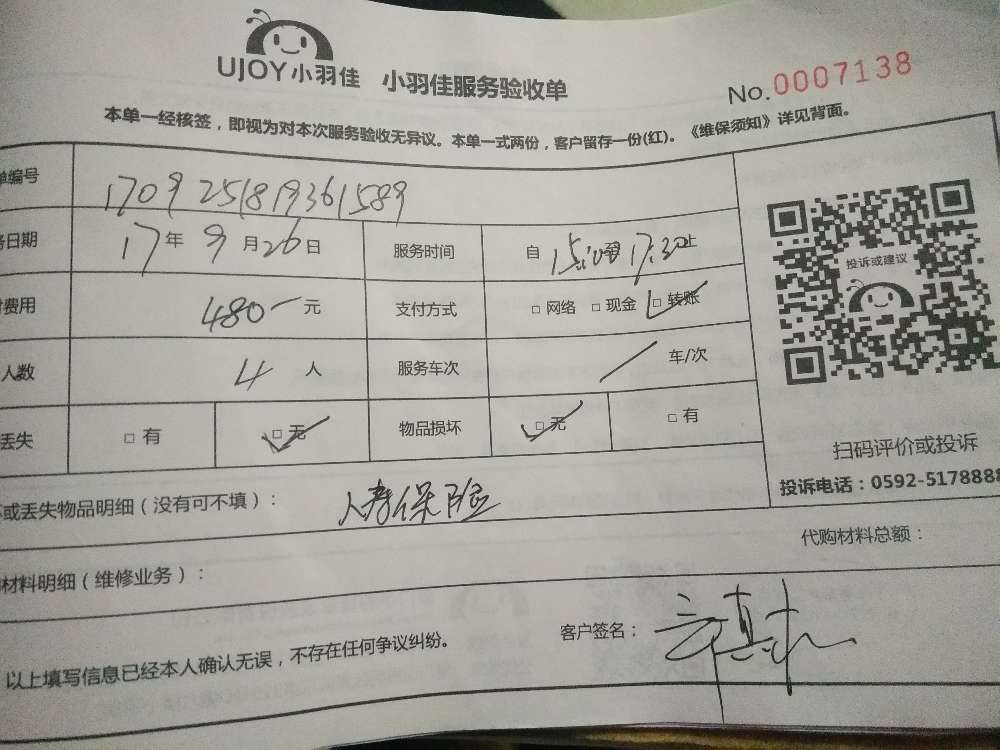 UJOY小羽佳 小羽佳服务验收单 No.0007138
本单一经核签，即视为对本次服务验收无异议。本单一式两份，客户留存一份(红)。《维保须知》详见背面。
单编号 1709251819361589
务日期 17年9月26日 服务时间 自15:00至17:30止
付费用 480 元 支付方式 □网络 □现金 □转账
人数 4 人 服务车次 / 车/次
丢失 □有 □无 物品损坏 □无 □有
投诉或建议
扫码评价或投诉
投诉电话：0592-5178888
坏或丢失物品明细（没有可不填）： 人寿保险
代购材料总额：
材料明细（维修业务）：
以上填写信息已经本人确认无误，不存在任何争议纠纷。 客户签名：